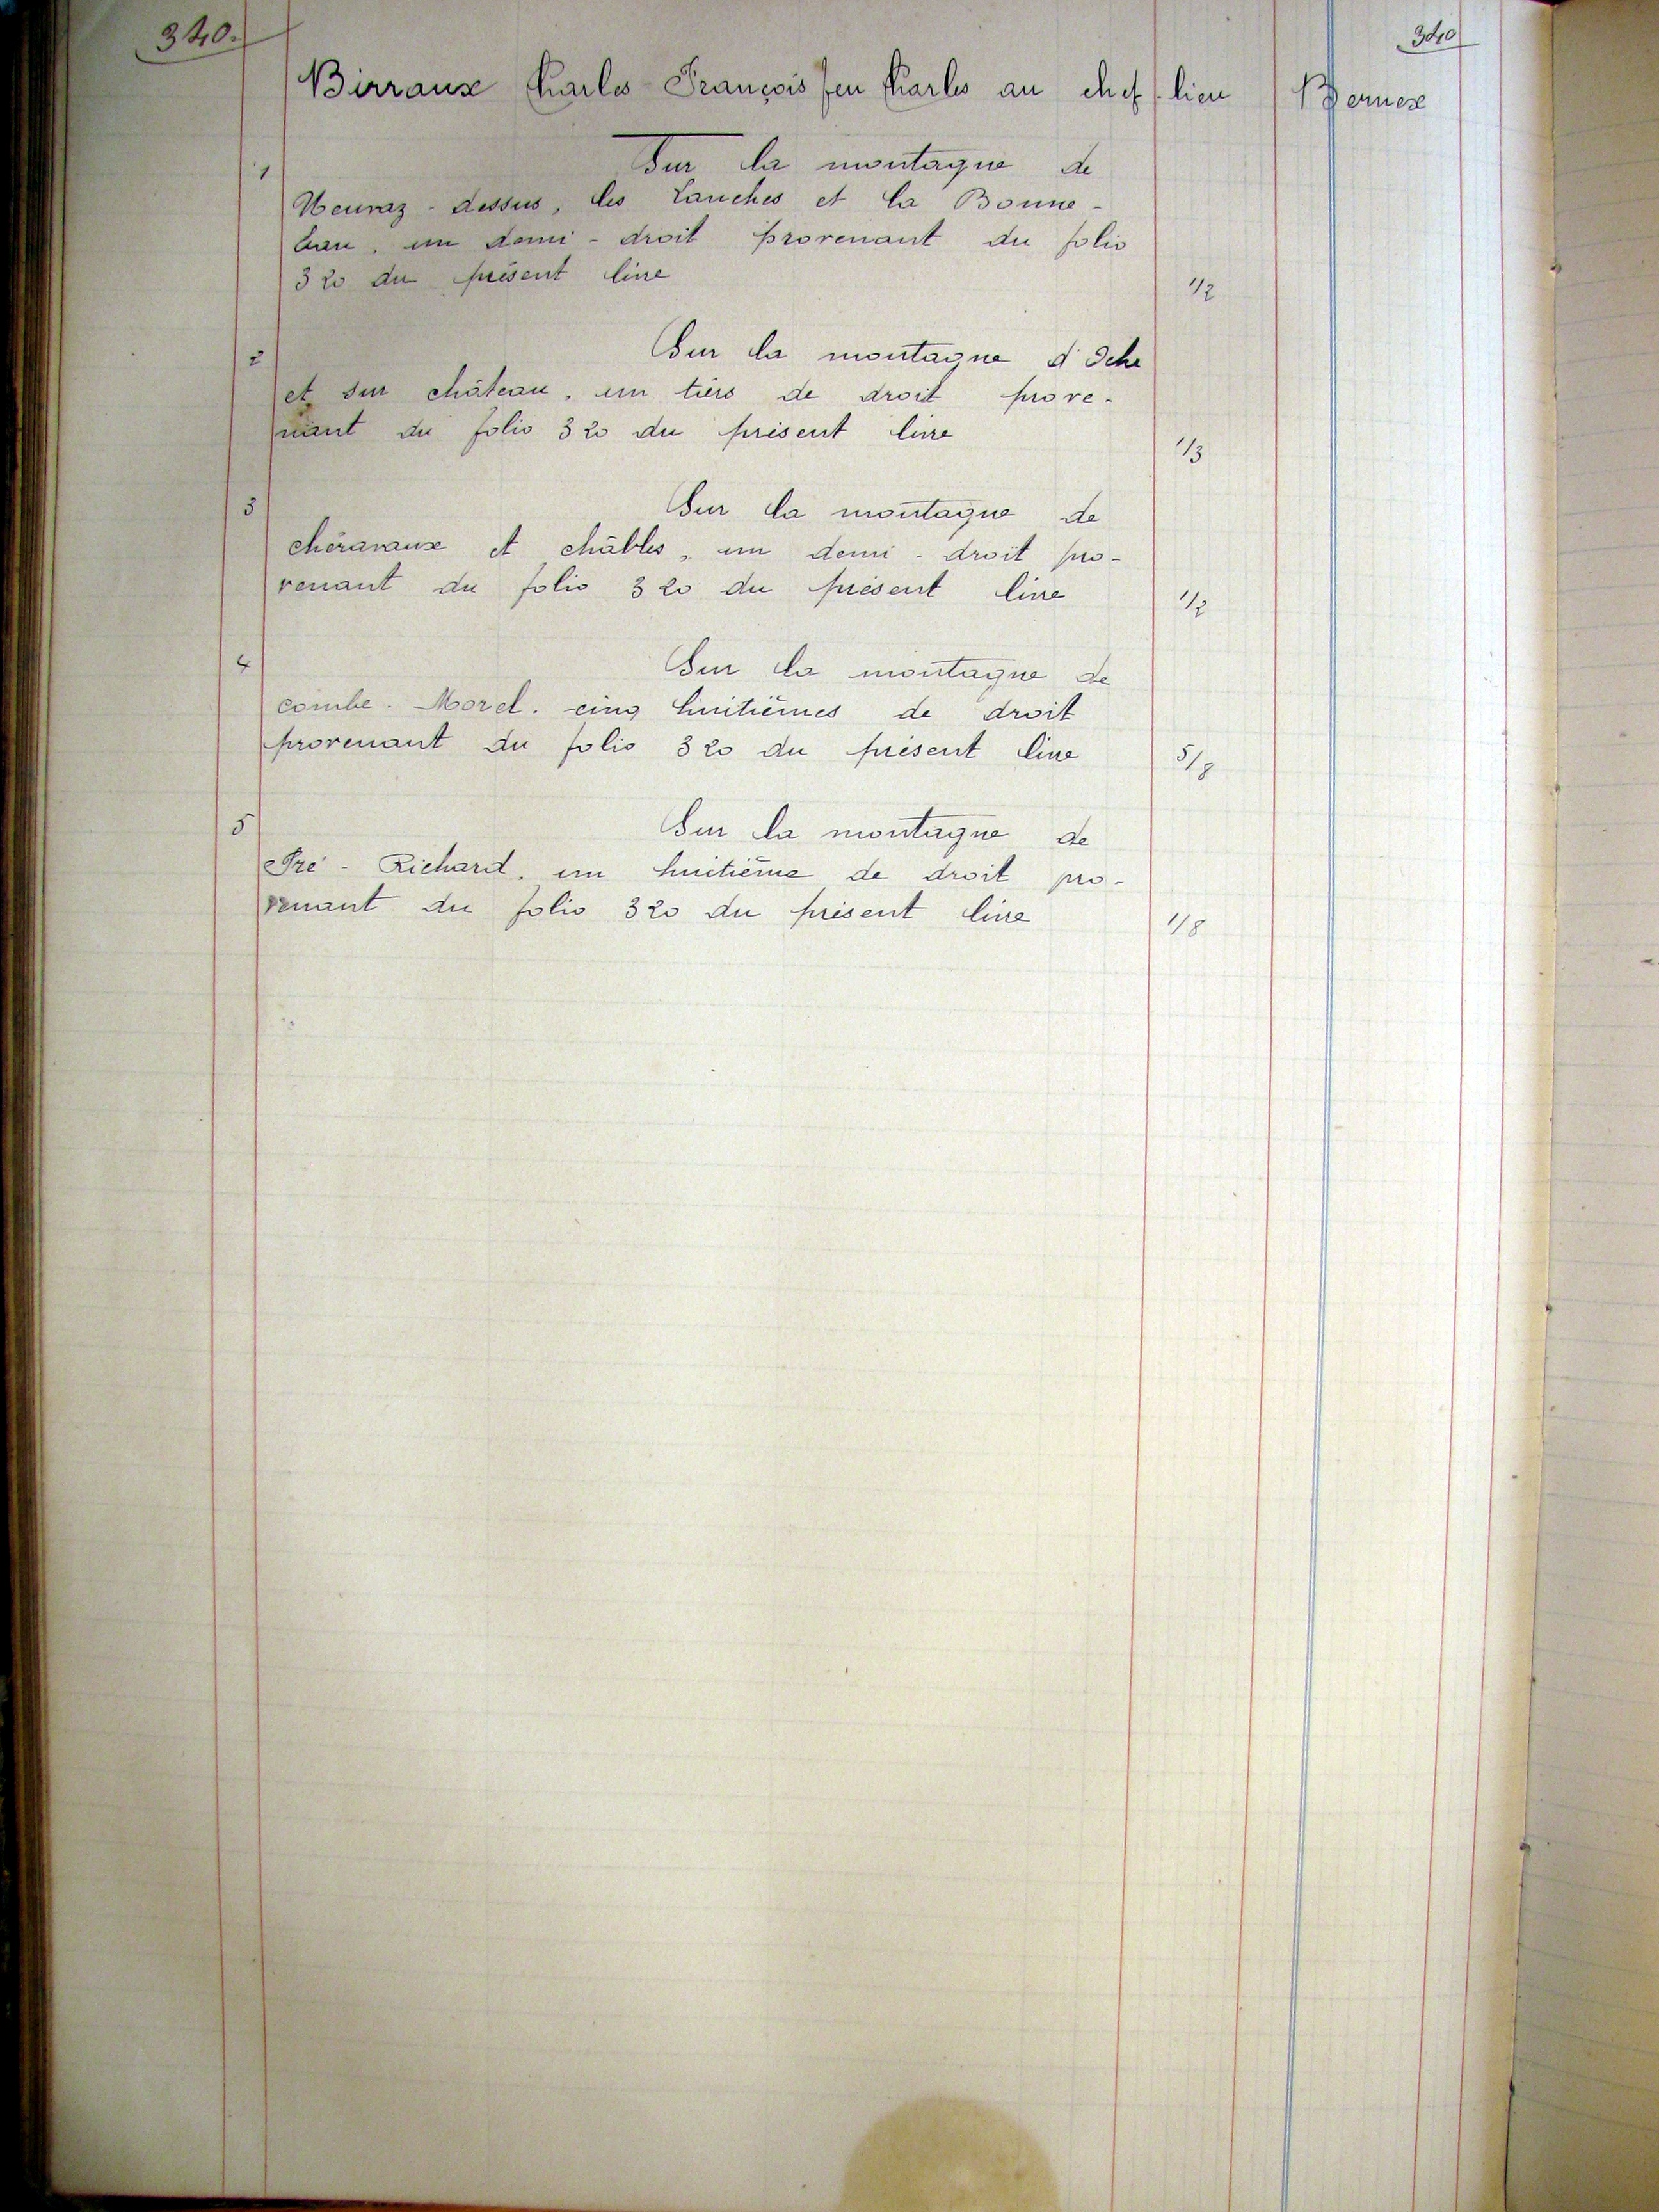 340. 340
Birraux Charles-François feu Charles au chef-lieu Bernex
1 Sur la montagne de
Neuvaz-dessus, les Lanches et la Bonne-
Eau, un demi-droit provenant du folio
320 du présent livre 1/2
2 Sur la montagne d'Oche
et sur château, un tiers de droit prove-
nant du folio 320 du présent livre 1/3
3 Sur la montagne de
chéravaux et châbles, un demi-droit pro-
venant du folio 320 du présent livre 1/2
4 Sur la montagne de
combe-Morel. cinq huitièmes de droit
provenant du folio 320 du présent livre 5/8
5 Sur la montagne de
Pré-Richard, un huitième de droit pro-
venant du folio 320 du présent livre 1/8